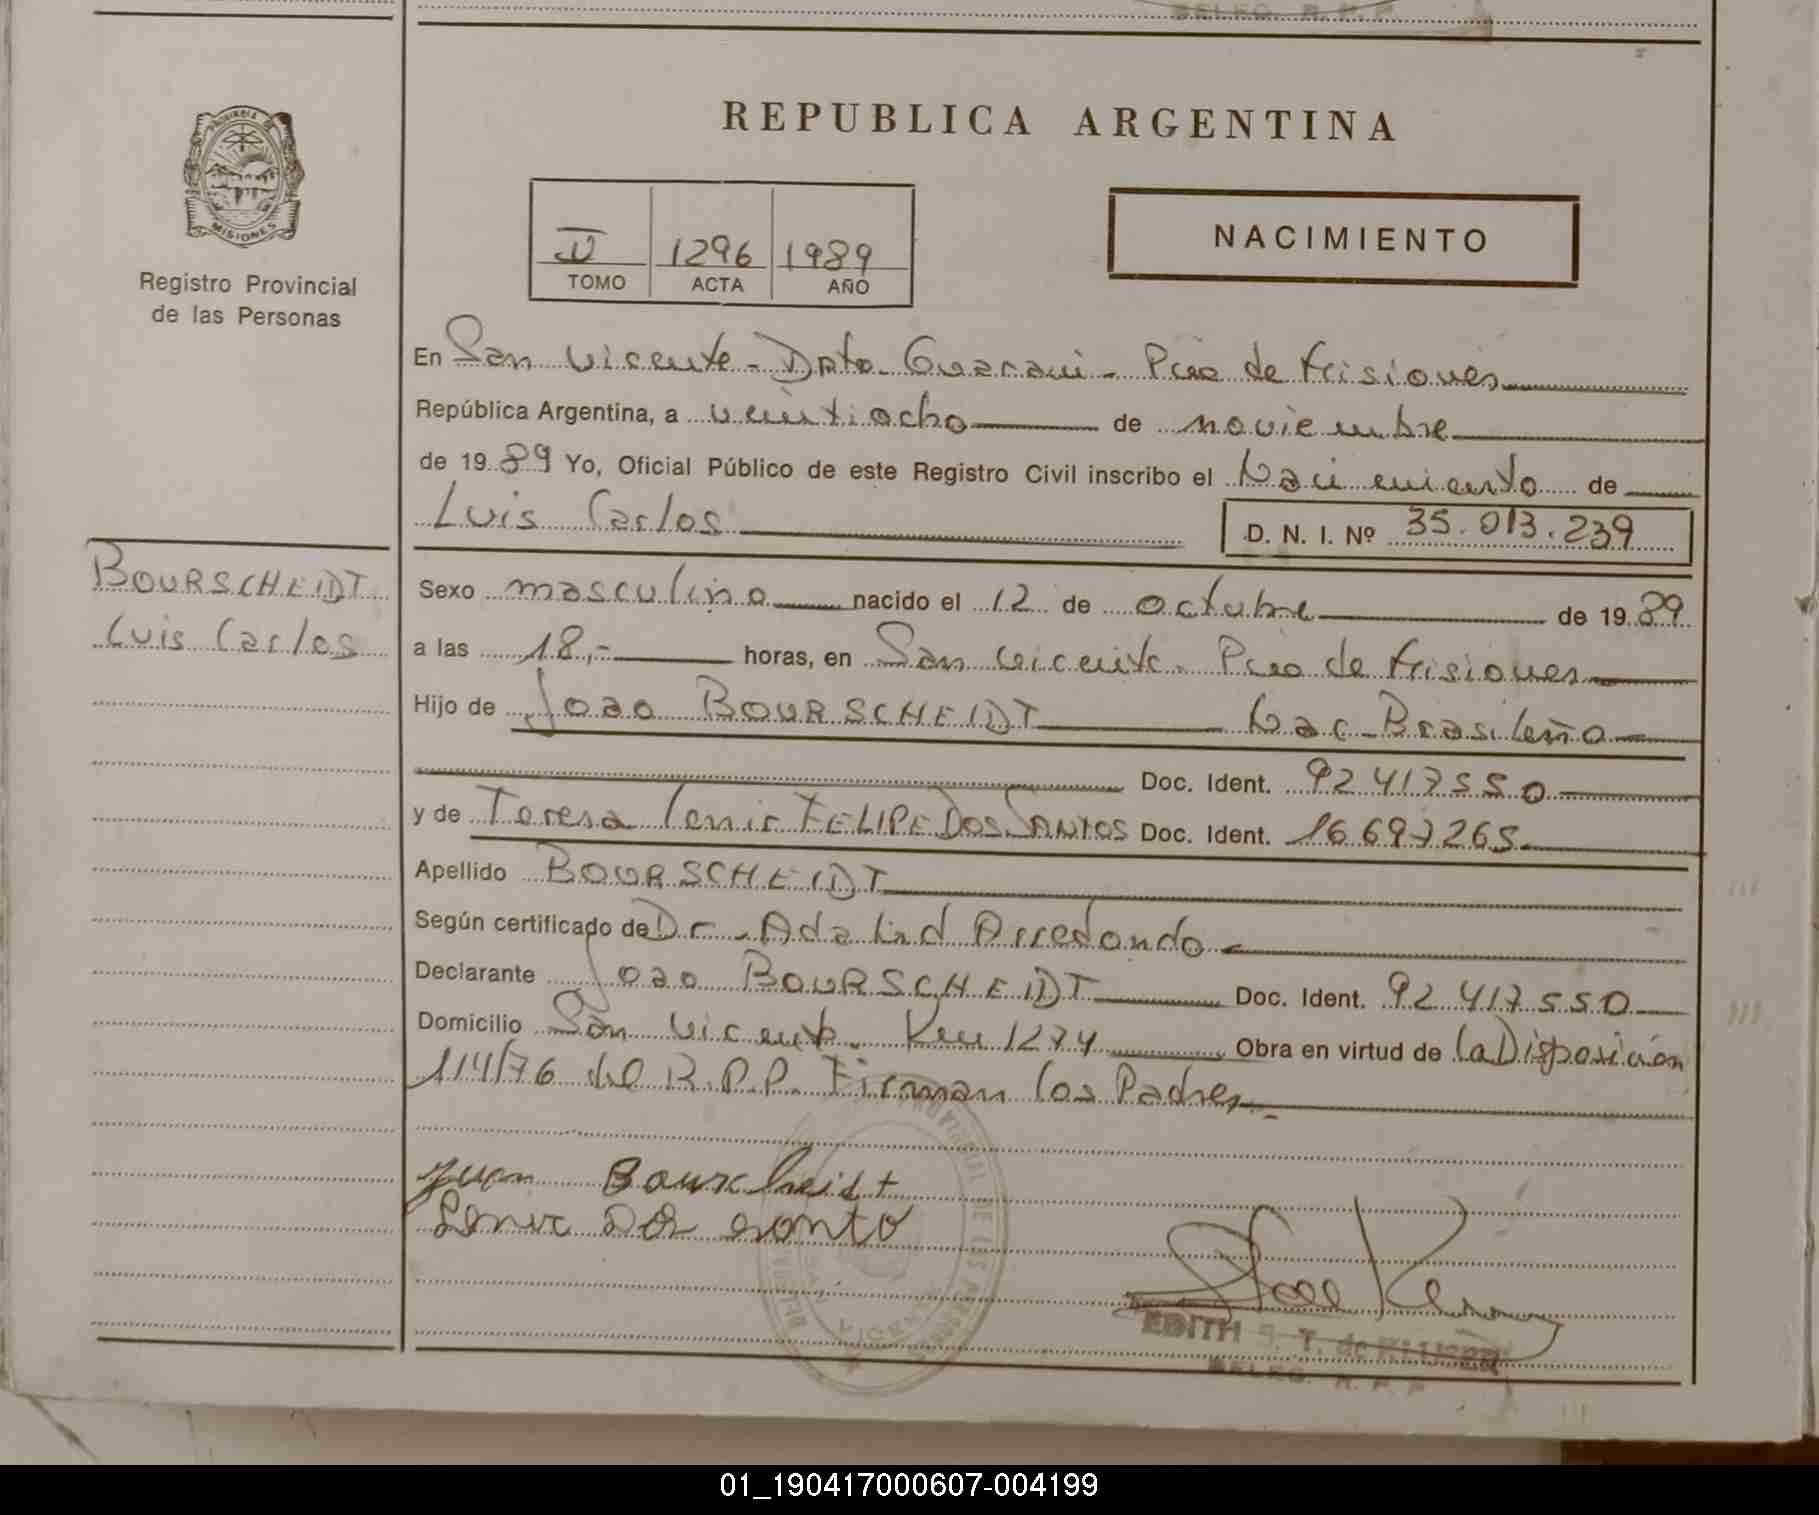 REPUBLICA ARGENTINA
PROVINCIA DE
MISIONES
Registro Provincial
de las Personas
1296 1989
TOMO ACTA AÑO
NACIMIENTO
En San Vicente - Dpto. Guarani - Pcia de Misiones
República Argentina, a veintiocho de noviembre
de 1989 Yo, Oficial Público de este Registro Civil inscribo el Nacimiento de
Luis Carlos D. N. I. Nº 35.013.239
BOURSCHEIDT
Luis Carlos
Sexo masculino nacido el 12 de octubre de 1989
a las 18,- horas, en San Vicente - Pcia de Misiones
Hijo de Joao BOURSCHEIDT Nac. Brasileño
Doc. Ident. 92417550
y de Teresa Lenir FELIPE DOS SANTOS Doc. Ident. 16697265
Apellido BOURSCHEIDT
Según certificado de Dr. Adalid Arredondo
Declarante Joao BOURSCHEIDT Doc. Ident. 92417550
Domicilio San Vicente. Km 1274 Obra en virtud de la Disposición
114/76 del R.P.P. Firman los Padres
Juan Bourscheidt
Lenir Dos Santo
EDITH T. de
DELEG. R. P. P.
01_190417000607-004199